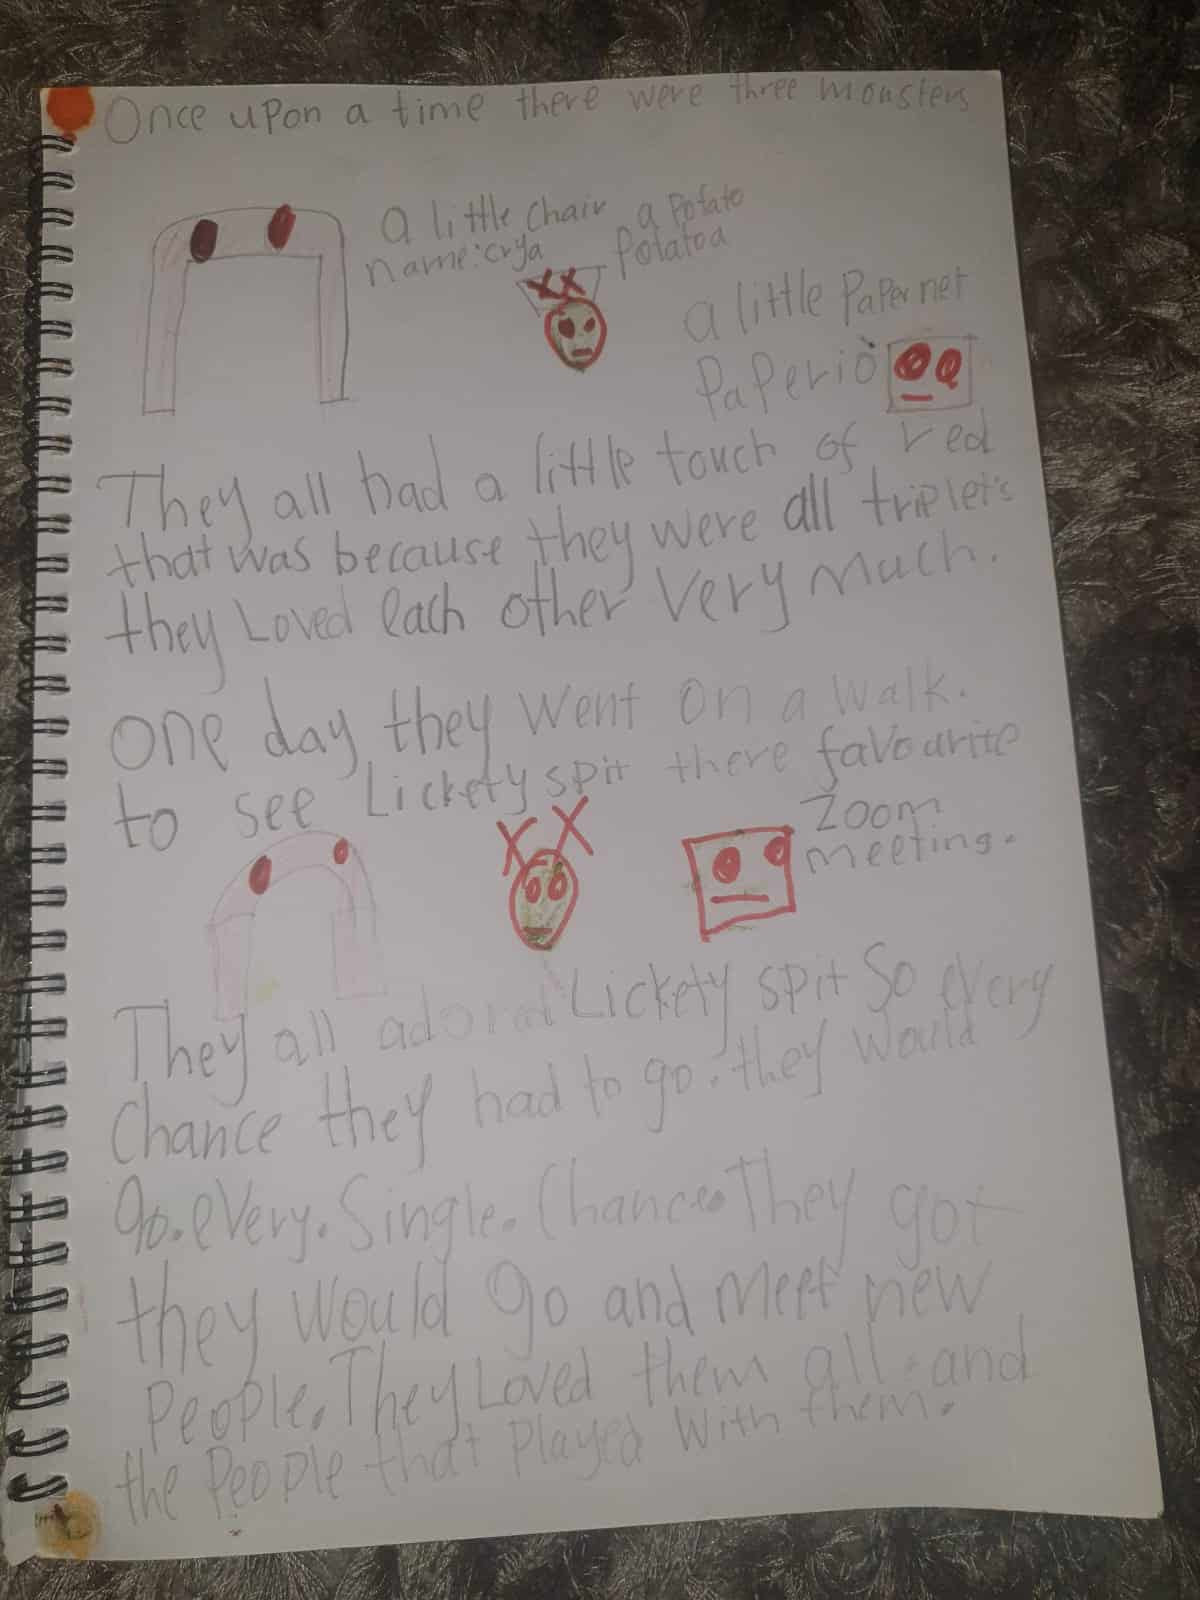 Once upon a time there were three monsters
a little chair
name: crya
a Potato
Potatoa
a little Paper net
PaPerio
They all had a little touch of red
that was because they were all triplet's
they Loved each other Very Much.
One day they went on a walk.
to see Lickety spit there favourite
Zoom
meeting.
They all Lickety spit So every
Chance they had to go. they would
go. eVery. Single. Chance. They got
they would go and meet new
People. They Loved them all. and
the People that Played With them.